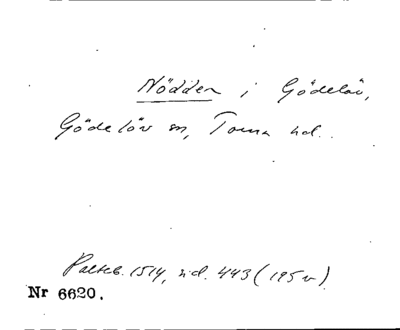 Nödden i Gödelöv,
Gödelöv sn, Torna hd.
Palteb. 1514, sid. 443 (195 v)
Nr 6620.